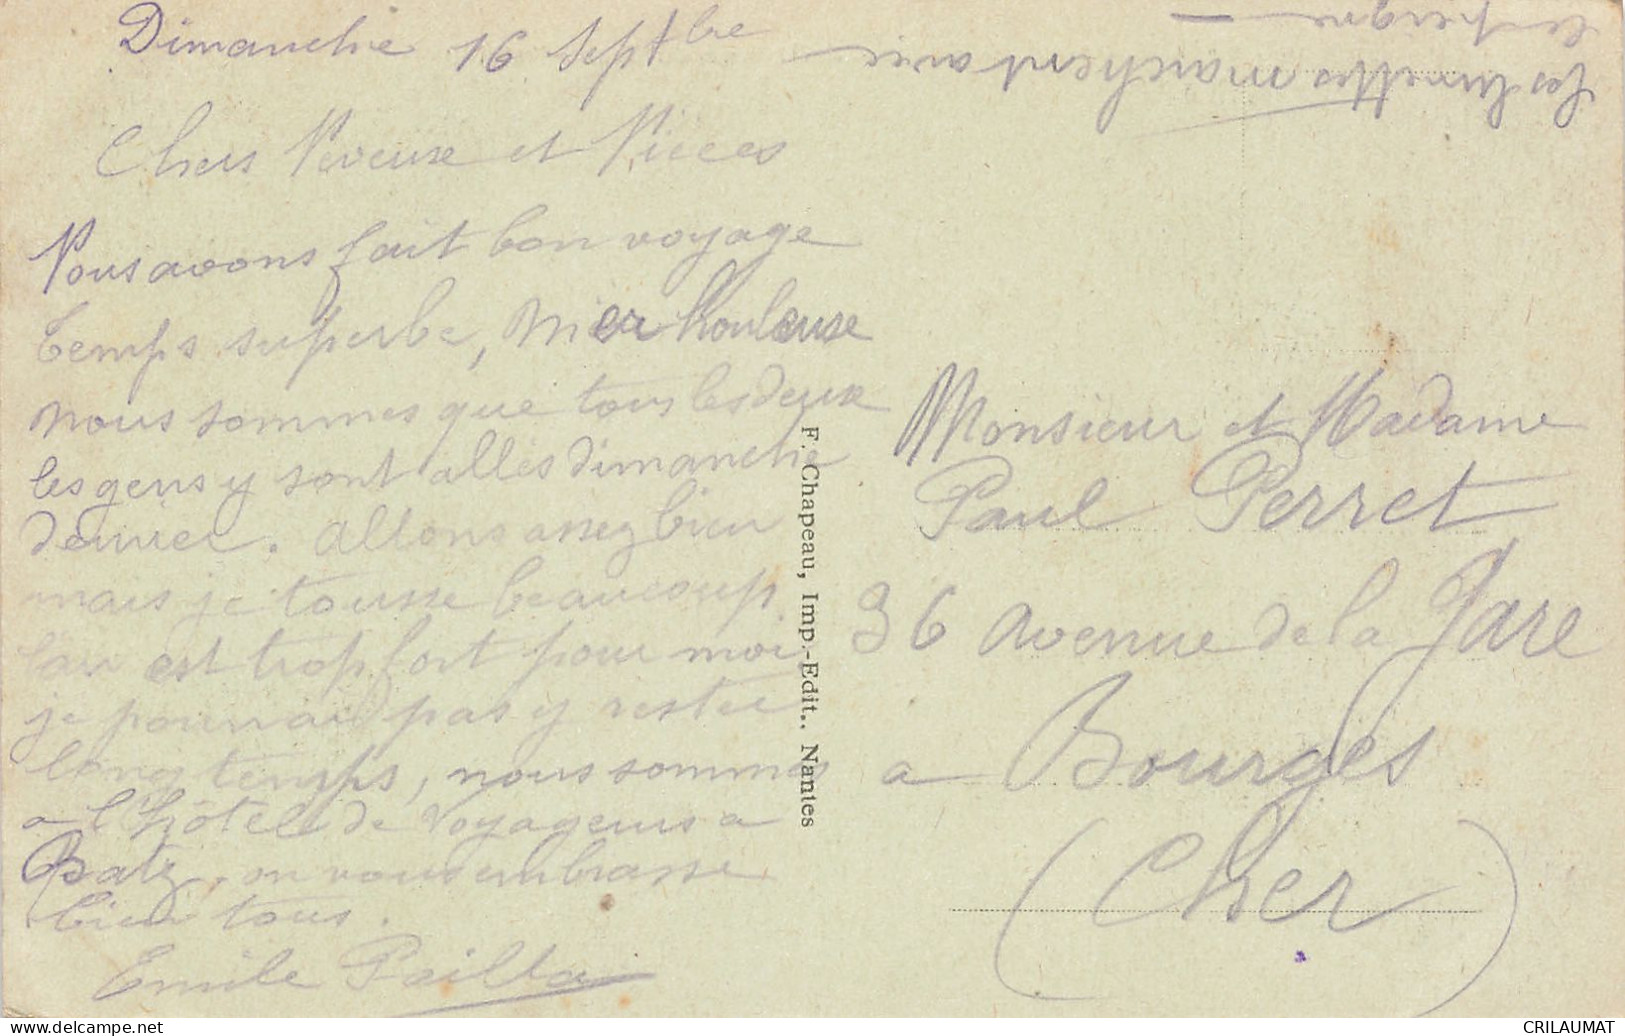 Dimanche 16 Septbre
Chers Neveux et Nièces
Nous avons fait bon voyage
temps superbe, Mer houleuse
nous sommes que tous les deux
les gens y sont allés dimanche
dernier. allons assez bien
mais je tousse beaucoup
l'air est trop fort pour moi
je pourrai pas y rester
longtemps, nous sommes
a l'hôtel de Voyageurs a
Batz. on vous embrasse
bien tous.
Emile
les lunettes marchent avec
le peigne
F. Chapeau, Imp.-Edit., Nantes
Monsieur et Madame
Paul Perret
36 avenue de la Gare
a Bourges
(Cher)
www.delcampe.net
CRILAUMAT